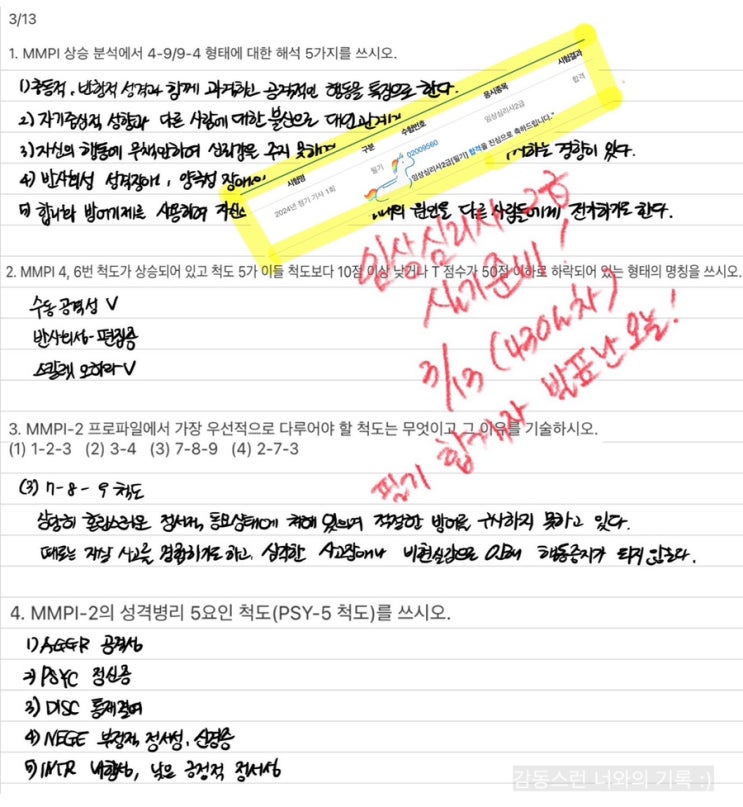 3/13
1. MMPI 상승 분석에서 4-9/9-4 형태에 대한 해석 5가지를 쓰시오.
1) 충동적·반항적 성격과 함께 과격하고 공격적인 행동을 특징으로 한다.
2) 자기중심적 성향과 다른 사람에 대한 불신으로 대인관계가
3) 자신의 행동에 무책임하여 신뢰감을 주지 못하며 하는 경향이 있다.
4) 반사회성 성격장애, 양극성 장애
5) 합리화 방어기제를 사용하여 자신 원인을 다른 사람들에게 전가하기도 한다.
시험명 구분 수험번호 응시종목 시험결과
2024년 정기 기사 1회 필기 02009560 임상심리사2급 합격
임상심리사2급[필기] 합격을 진심으로 축하드립니다."
임상심리사 2급
실기준비!
3/13 (430h차)
필기 합격자 발표난 오늘!
2. MMPI 4, 6번 척도가 상승되어 있고 척도 5가 이들 척도보다 10점 이상 낮거나 T 점수가 50점 이하로 하락되어 있는 형태의 명칭을 쓰시오.
수동 공격성 V
반사회성-편집증
스칼렛 오하라 V
3. MMPI-2 프로파일에서 가장 우선적으로 다루어야 할 척도는 무엇이고 그 이유를 기술하시오.
(1) 1-2-3 (2) 3-4 (3) 7-8-9 (4) 2-7-3
(3) 7-8-9 척도
상당히 혼란스러운 정서적, 동요상태에 처해 있으며 적절한 방어를 구사하지 못하고 있다.
때로는 자살 사고를 경험하기도 하고, 심각한 사고장애나 비현실감으로 인해 행동중지가 되지 않는다.
4. MMPI-2의 성격병리 5요인 척도(PSY-5 척도)를 쓰시오.
1) AGGR 공격성
2) PSYC 정신증
3) DISC 통제결여
4) NEGE 부정적 정서성, 신경증
5) INTR 내향성, 낮은 긍정적 정서성
감동스런 너와의 기록 :)